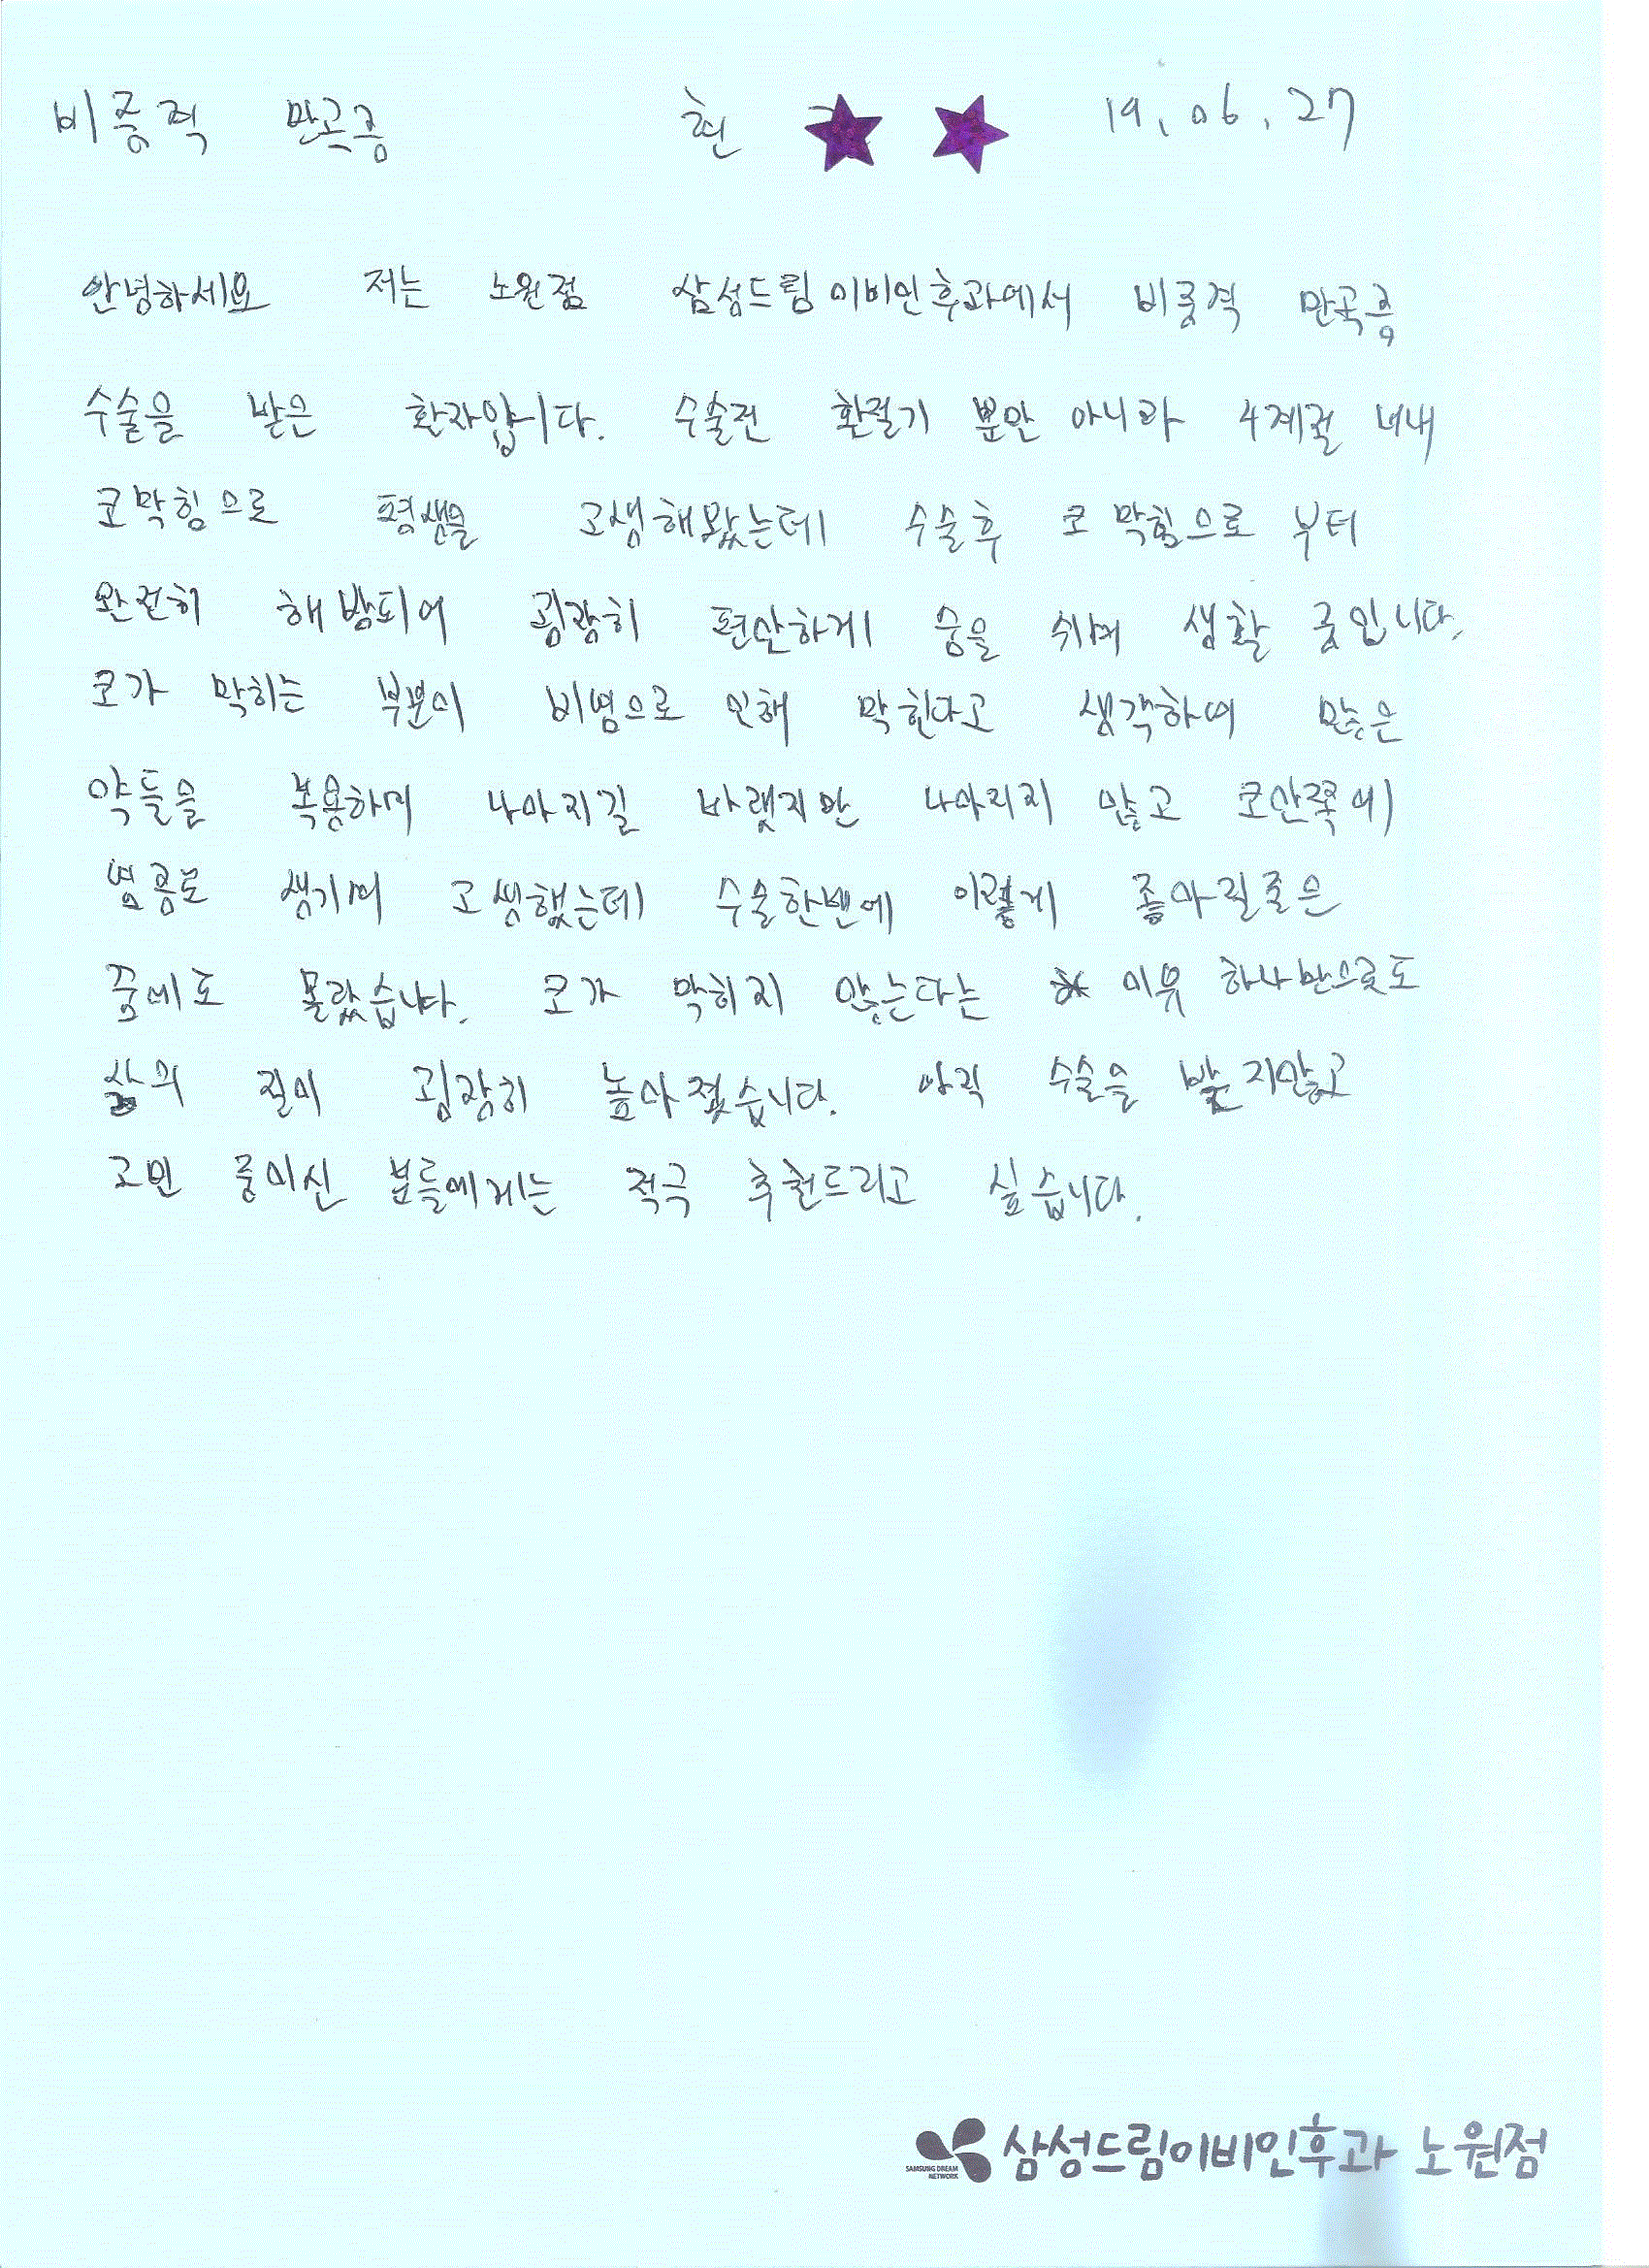 비중격 만곡증 현 19. 06. 27
안녕하세요 저는 노원점 삼성드림이비인후과에서 비중격 만곡증
수술을 받은 환자입니다. 수술전 환절기 뿐만 아니라 4계절 내내
코막힘으로 평생을 고생해왔는데 수술후 코 막힘으로 부터
완전히 해방되어 굉장히 편안하게 숨을 쉬며 생활 중입니다.
코가 막히는 부분이 비염으로 인해 막힌다고 생각하여 많은
약들을 복용하며 나아지길 바랬지만 나아지지 않고 코안쪽에
염증도 생기며 고생했는데 수술한번에 이렇게 좋아질줄은
꿈에도 몰랐습니다. 코가 막히지 않는다는 이유 하나만으로도
삶의 질이 굉장히 높아졌습니다. 아직 수술을 받지않고
고민 중이신 분들에게는 적극 추천드리고 싶습니다.
SAMSUNG DREAM
NETWORK
삼성드림이비인후과 노원점